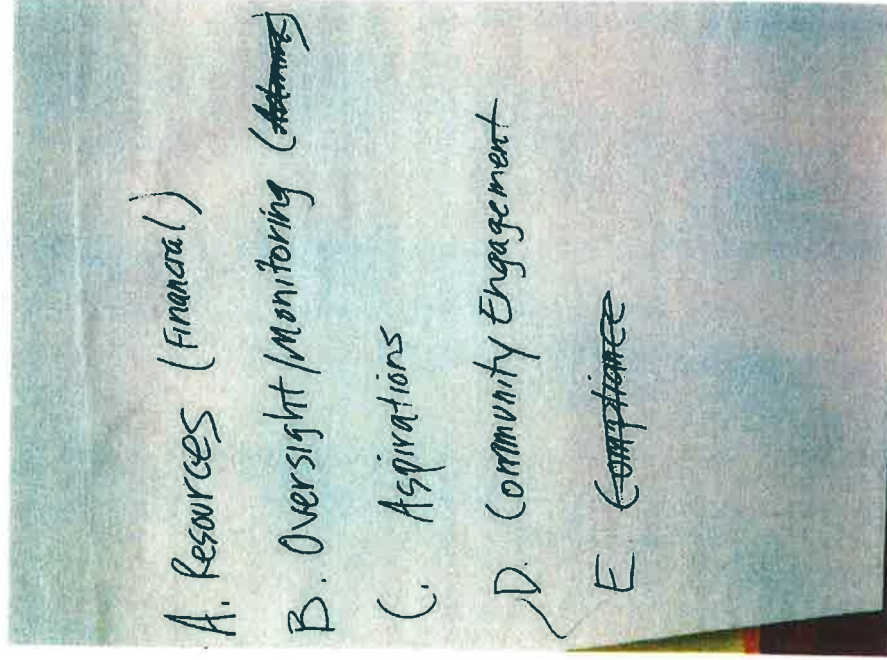 A. Resources (Financial)
B. Oversight/Monitoring
C. Aspirations
D. Community Engagement
E. Compliance